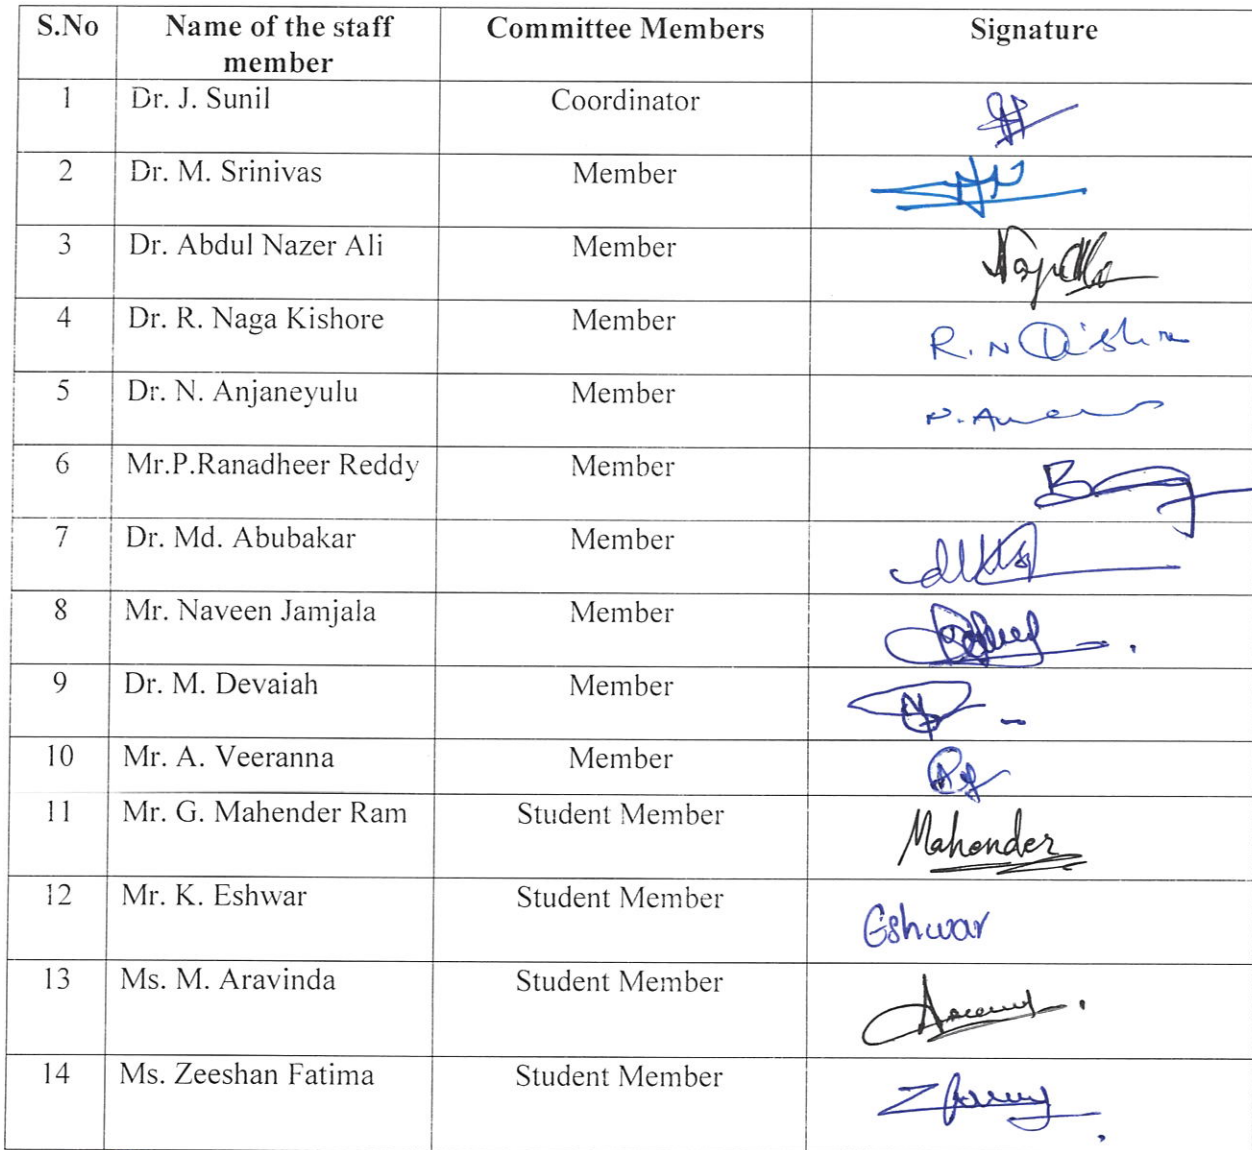 S.No Name of the staff Committee Members Signature
member
1 Dr. J. Sunil Coordinator
2 Dr. M. Srinivas Member
3 Dr. Abdul Nazer Ali Member
4 Dr. R. Naga Kishore Member R. N
5 Dr. N. Anjaneyulu Member
6 Mr.P.Ranadheer Reddy Member
7 Dr. Md. Abubakar Member
8 Mr. Naveen Jamjala Member
9 Dr. M. Devaiah Member
10 Mr. A. Veeranna Member
11 Mr. G. Mahender Ram Student Member Mahender
12 Mr. K. Eshwar Student Member Eshwar
13 Ms. M. Aravinda Student Member
14 Ms. Zeeshan Fatima Student Member